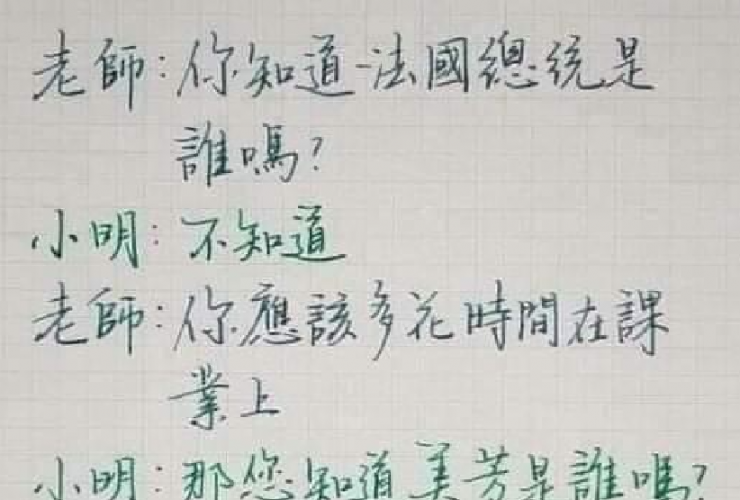 老師：你知道法國總統是
誰嗎？
小明：不知道
老師：你應該多花時間在課
業上
小明：那您知道美芳是誰嗎？